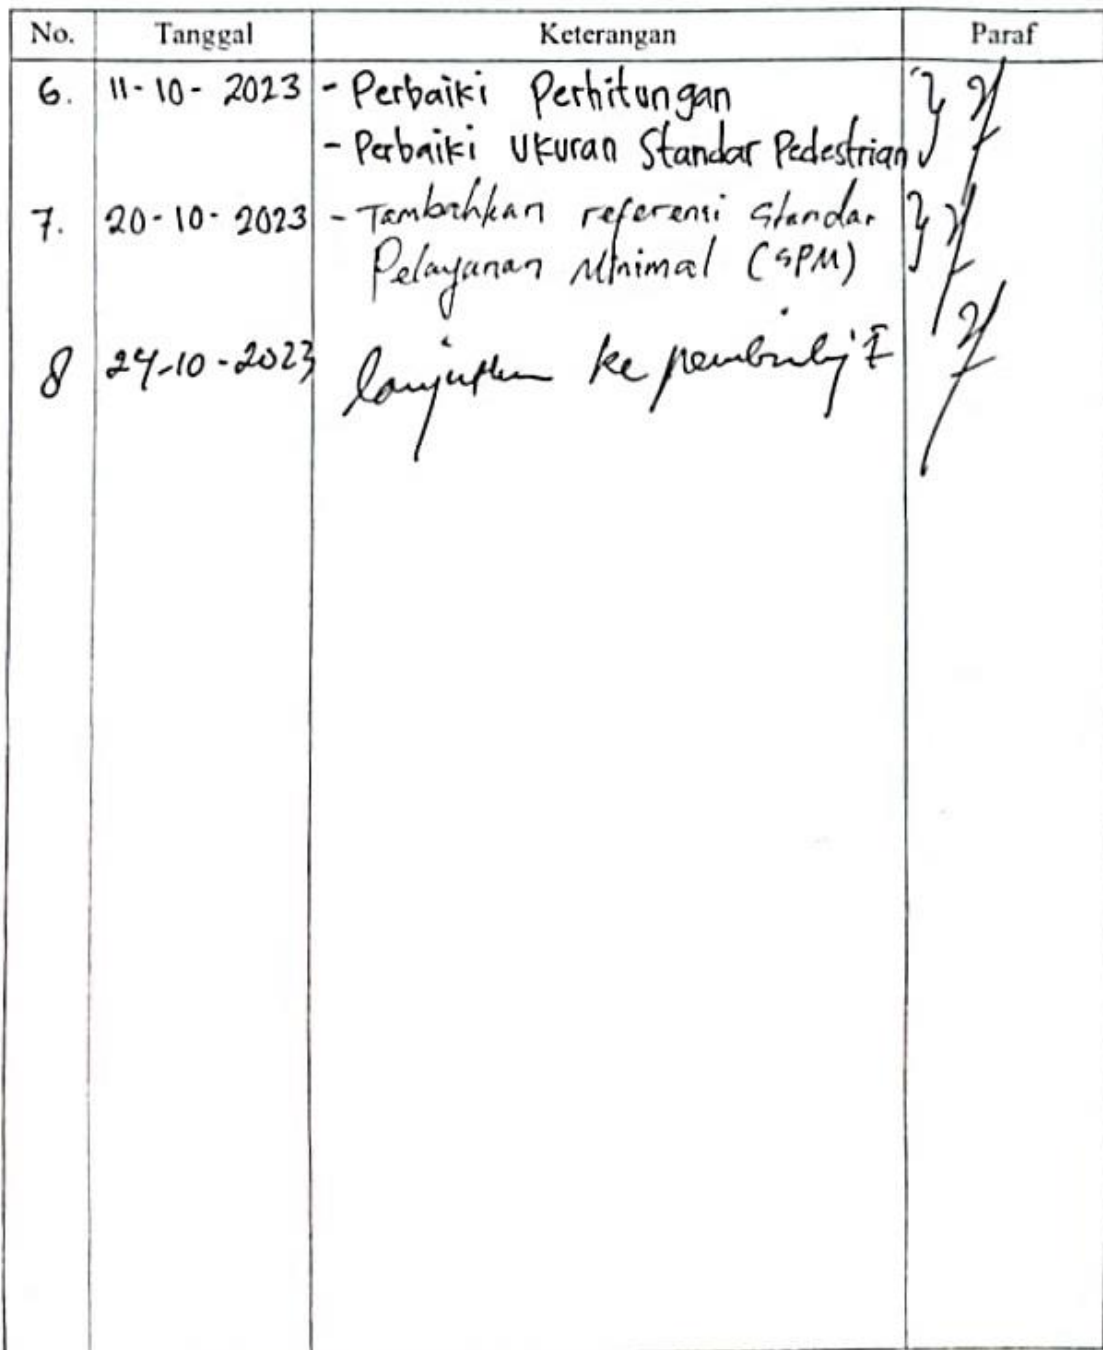 No. Tanggal Keterangan Paraf
6. 11-10-2023 - Perbaiki Perhitungan
- Perbaiki Ukuran Standar Pedestrian
7. 20-10-2023 - Tambahkan referensi Standar
Pelayanan Minimal (SPM)
8 24-10-2023 lanjutkan ke pembimbing I